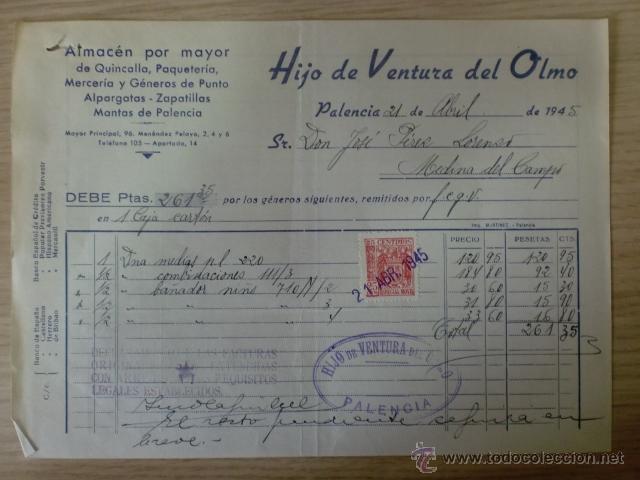 Almacén por mayor
de Quincalla, Paquetería,
Mercería y Géneros de Punto
Alpargatas - Zapatillas
Mantas de Palencia
Mayor Principal, 96. Menéndez Pelayo, 2, 4 y 6
Teléfono 105 - Apartado, 14
Hijo de Ventura del Olmo
Palencia 21 de Abril de 1945
Sr. Don José Pérez Lorenzo
Medina del Campo
DEBE Ptas. 261 35 por los géneros siguientes, remitidos por f.c.g.v.
en 1 Caja cartón
Imp. MARTINEZ - Palencia
PRECIO PESETAS CTS.
1 Dna medias pl 220 120 95 120 95
" 1/2 " combinaciones 111/3 184 80 92 40
" 1/2 " bañador niño 710/1/2 30 60 15 30
" 1/2 " " " 3 31 80 15 90
" 1/2 " " " 4 33 60 16 80
Total 261 35
CENTIMOS
21 ABR. 1945
HIJO DE VENTURA DEL OLMO
PALENCIA
LAS FACTURAS
REQUISITOS
LEGALES ESTABLECIDOS.
El resto pendiente
en
breve.-
Banco Español de Crédito
Popular Previsores Porvenir
Hispano Americano
Mercantil
Banco de España
Castellano
Herrero
de Bilbao
C/c.
todocoleccion.net